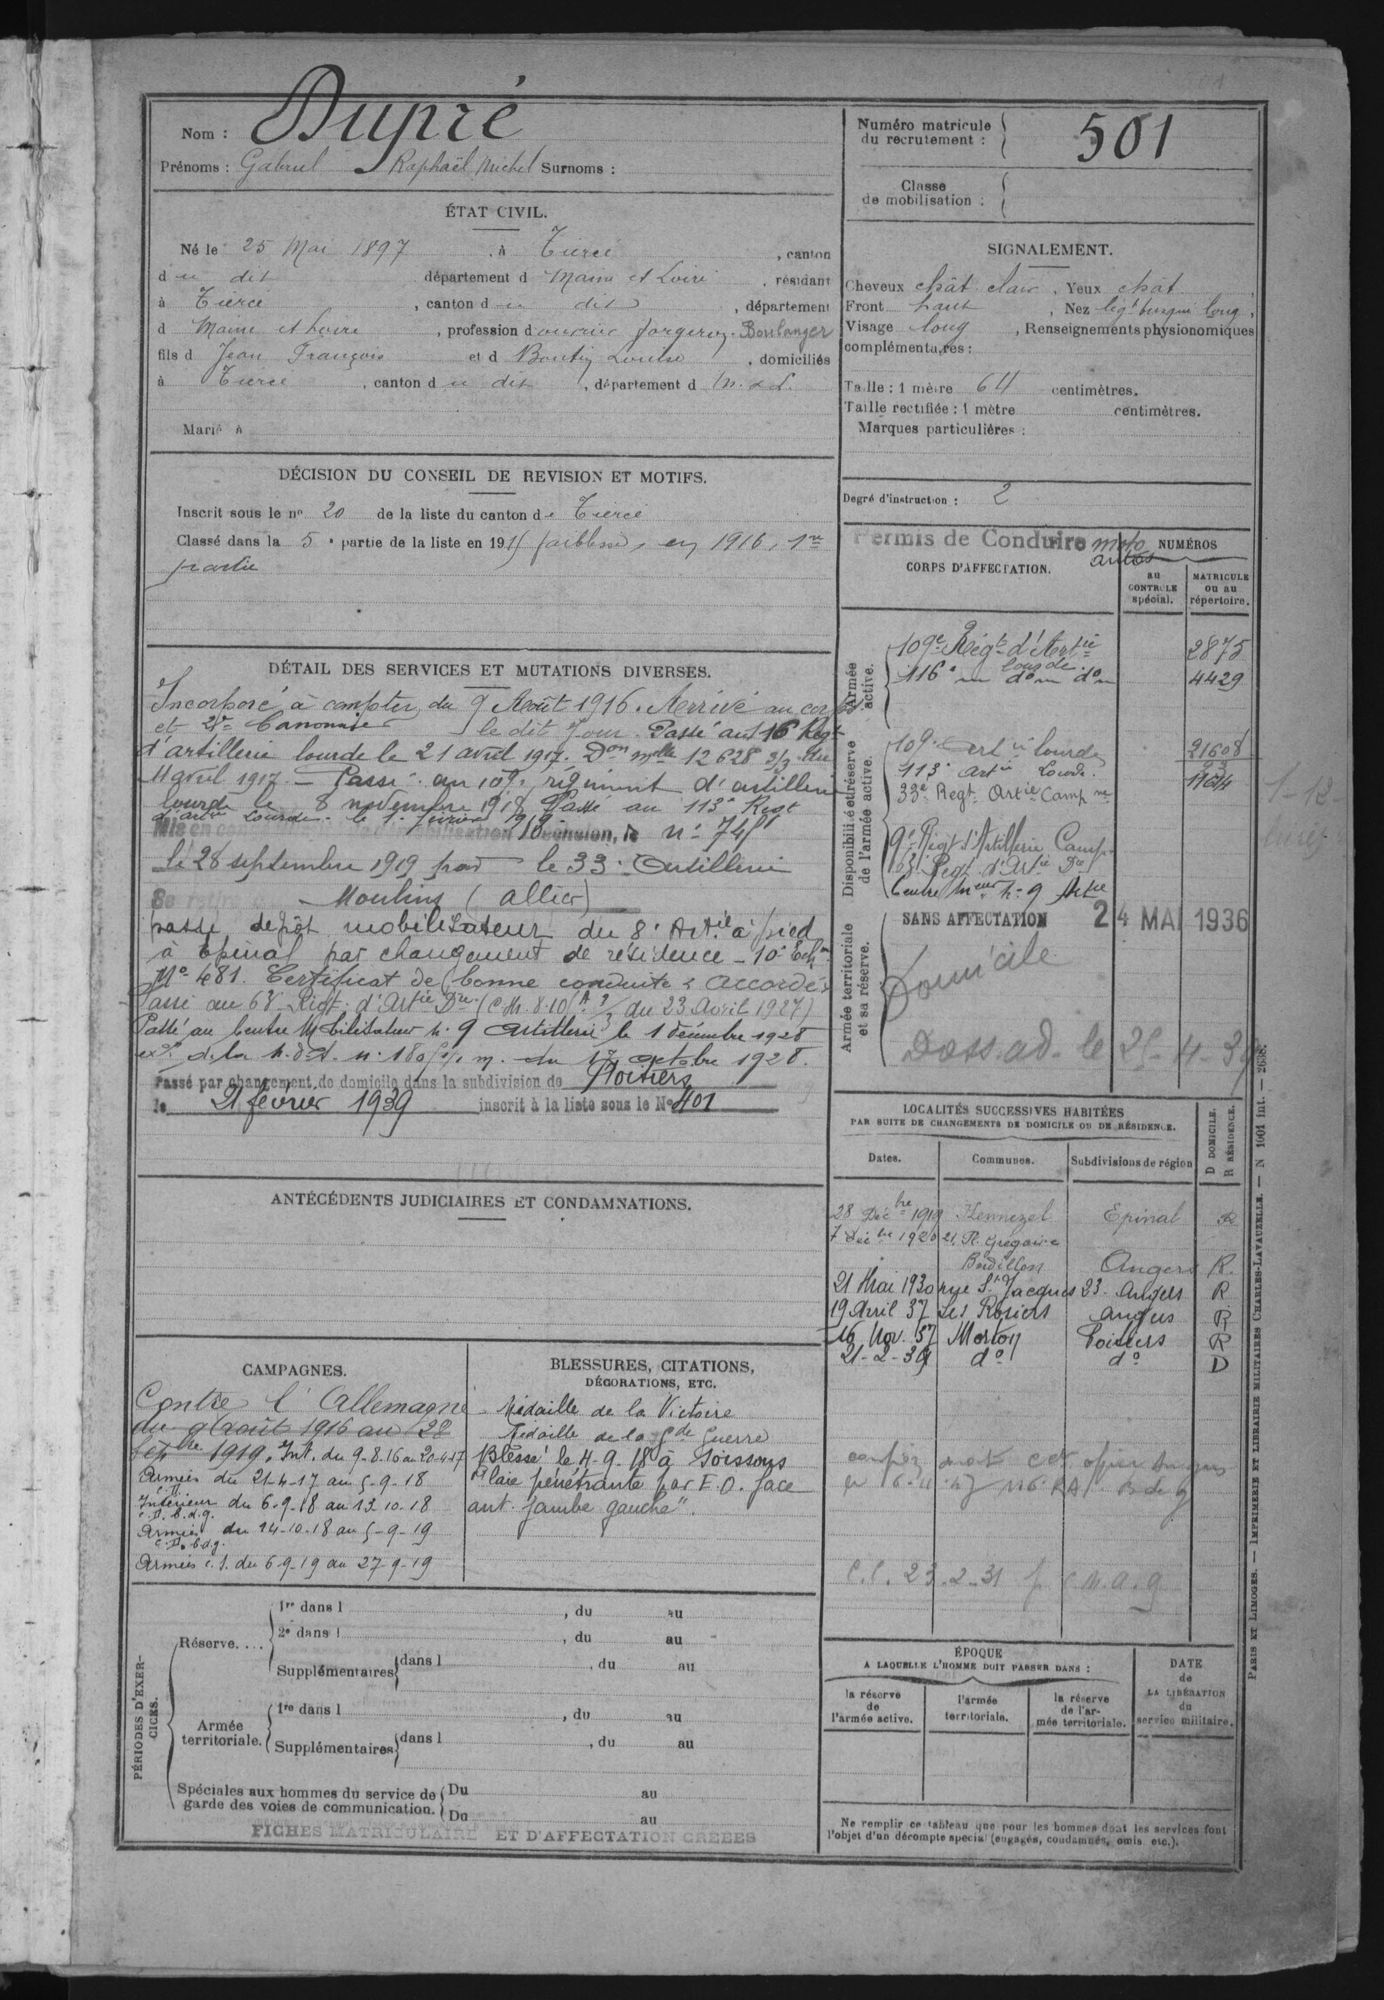 Nom : Dupré
Prénoms : Gabriel Raphaël Michel Surnoms :
Numéro matricule du recrutement : 501
Classe de mobilisation :
ÉTAT CIVIL.
Né le 25 Mai 1897, à Tiercé, canton
du dit département d Maine et Loire, résidant
à Tiercé, canton du dit, département
d Maine et Loire, profession d ouvrier forgeron. Boulanger
fils d Jean François et d Boutin Louise, domiciliés
à Tiercé, canton du dit, département d M. et L.
Marié à
SIGNALEMENT.
Cheveux chât clair, Yeux chât
Front haut, Nez leg busqué long,
Visage long, Renseignements physionomiques
complémentaires :
Taille : 1 mètre 64 centimètres.
Taille rectifiée : 1 mètre centimètres.
Marques particulières :
Degré d'instruction : 2
DÉCISION DU CONSEIL DE REVISION ET MOTIFS.
Inscrit sous le n° 20 de la liste du canton de Tiercé
Classé dans la 5e partie de la liste en 1915 faiblesse, en 1916, 1re
partie
DÉTAIL DES SERVICES ET MUTATIONS DIVERSES.
Incorporé à compter du 9 Août 1916. Arrivé au corps
et 2e Canonnier le dit jour. Passé au 116 Régt
d'artillerie lourde le 21 avril 1917. Don mlle 12628 2/3 du
11 avril 1917 – Passé au 109e régiment d'artillerie
lourde le 8 novembre 1918 Passé au 113e Regt
d'artie Lourde le 1er février 1919.
Mis en congé de démobilisation 10 échelon, le n° 745
Le 28 septembre 1919 par le 33e Artillerie
Se retire Moulins (Allier)
passé dépôt mobilisateur du 8e Artie à pied
à Epinal par changement de résidence – 10e Echon
No 481. Certificat de bonne conduite "Accordé"
Passé au 63e Régt. d'Artie Dre (C.M. 8.10 A 3/3 du 23 Avril 1927)
Passé au Centre Mobilisateur n° 9 Artillerie le 1 décembre 1928
de la du 17 octobre 1928.
Passé par changement de domicile dans la subdivision de Poitiers
le 21 février 1939 inscrit à la liste sous le No 401
Permis de Conduire moto autos
CORPS D'AFFECTATION.
NUMÉROS
au CONTROLE spécial.
MATRICULE ou au répertoire.
Armée active.
109e Régt d'Artie lourde 2875
116e do do 4429
Disponibilité et réserve de l'armée active.
109e Artie lourde 21608
113e Artie Lourde.
33e Regt. Artie Camp ne
9e Régt d'Artillerie Camp
63e Regt. d'Artie Dre
Centre Mteur n° 9 Artie
Armée territoriale et sa réserve.
SANS AFFECTATION 24 MAI 1936
Domicile
Doss. ad. le 25-4-39
LOCALITÉS SUCCESSIVES HABITÉES
PAR SUITE DE CHANGEMENTS DE DOMICILE OU DE RÉSIDENCE.
Dates. Communes. Subdivisions de région D DOMICILE. R RÉSIDENCE.
28 Décbre 1919 Hennezel Epinal R
7 Décbre 1920 21. R. Grégoire
Bordillon Angers R.
21 Mai 1930 rue St Jacques 23. Angers R
19 Avril 37 Les Rosiers Angers R
16 Nov. 37 Morton Poitiers R
21-2-39 do do D
C.C. 23.2.31 p. C.M.A. 9
ANTÉCÉDENTS JUDICIAIRES ET CONDAMNATIONS.
CAMPAGNES.
Contre l'Allemagne
du 9 Août 1916 au 28
Septbre 1919. Int. du 9-8-16 au 20-4-17
Armées du 21-4-17 au 5-9-18
Intérieur du 6-9-18 au 13-10-18
C.D. b.d.g.
Armées du 14-10-18 au 5-9-19
C.D. b.d.g.
Armées C.S. du 6-9-19 au 27-9-19
BLESSURES, CITATIONS,
DÉCORATIONS, ETC.
Médaille de la Victoire
Médaille de la Gde Guerre
Blessé le 4-9-18 à Soissons
"Plaie pénétrante par E.O. face
ant. jambe gauche".
PÉRIODES D'EXERCICES.
Réserve....
1re dans l , du au
2e dans l , du au
Supplémentaires dans l , du au
Armée territoriale.
1re dans l , du au
Supplémentaires dans l , du au
Spéciales aux hommes du service de garde des voies de communication.
Du au
Du au
FICHES MATRICULAIRE ET D'AFFECTATION CRÉÉES
ÉPOQUE
A LAQUELLE L'HOMME DOIT PASSER DANS :
la réserve de l'armée active.
l'armée territoriale.
la réserve de l'armée territoriale.
DATE de LA LIBÉRATION du service militaire.
Ne remplir ce tableau que pour les hommes dont les services font
l'objet d'un décompte spécial (engagés, condamnés, omis, etc.).
PARIS ET LIMOGES. — IMPRIMERIE ET LIBRAIRIE MILITAIRES CHARLES-LAVAUZELLE. — N 1001 int. — 2638.